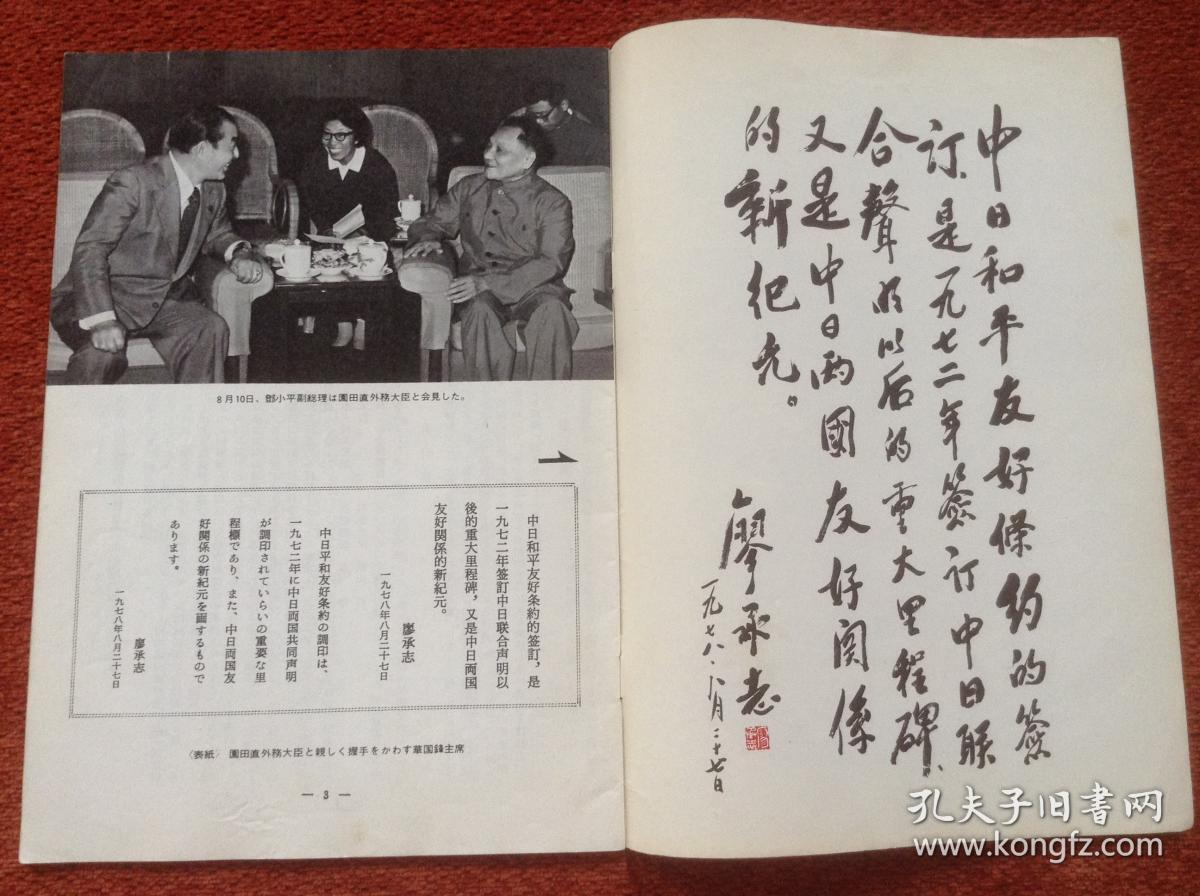 8月10日、鄧小平副総理は園田直外務大臣と会見した。
1
中日和平友好条約的签訂，是
一九七二年签訂中日联合声明以
後的重大里程碑，又是中日両国
友好関係的新紀元。
廖承志
一九七八年八月二十七日
中日平和友好条約の調印は、
一九七二年に中日両国共同声明
が調印されていらいの重要な里
程標であり、また、中日両国友
好関係の新紀元を画するもので
あります。
廖承志
一九七八年八月二十七日
〈表紙〉園田直外務大臣と親しく握手をかわす華国鋒主席
— 3 —
中日和平友好條約的簽
订、是一九七二年簽订中日联
合聲明以后的重大里程碑、
又是中日両國友好関係
的新纪元。
廖承志
一九七八.八月二十七日
孔夫子旧书网
www.kongfz.com